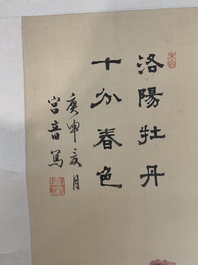 洛陽牡丹
十分春色
庚申亥月
宮音篤